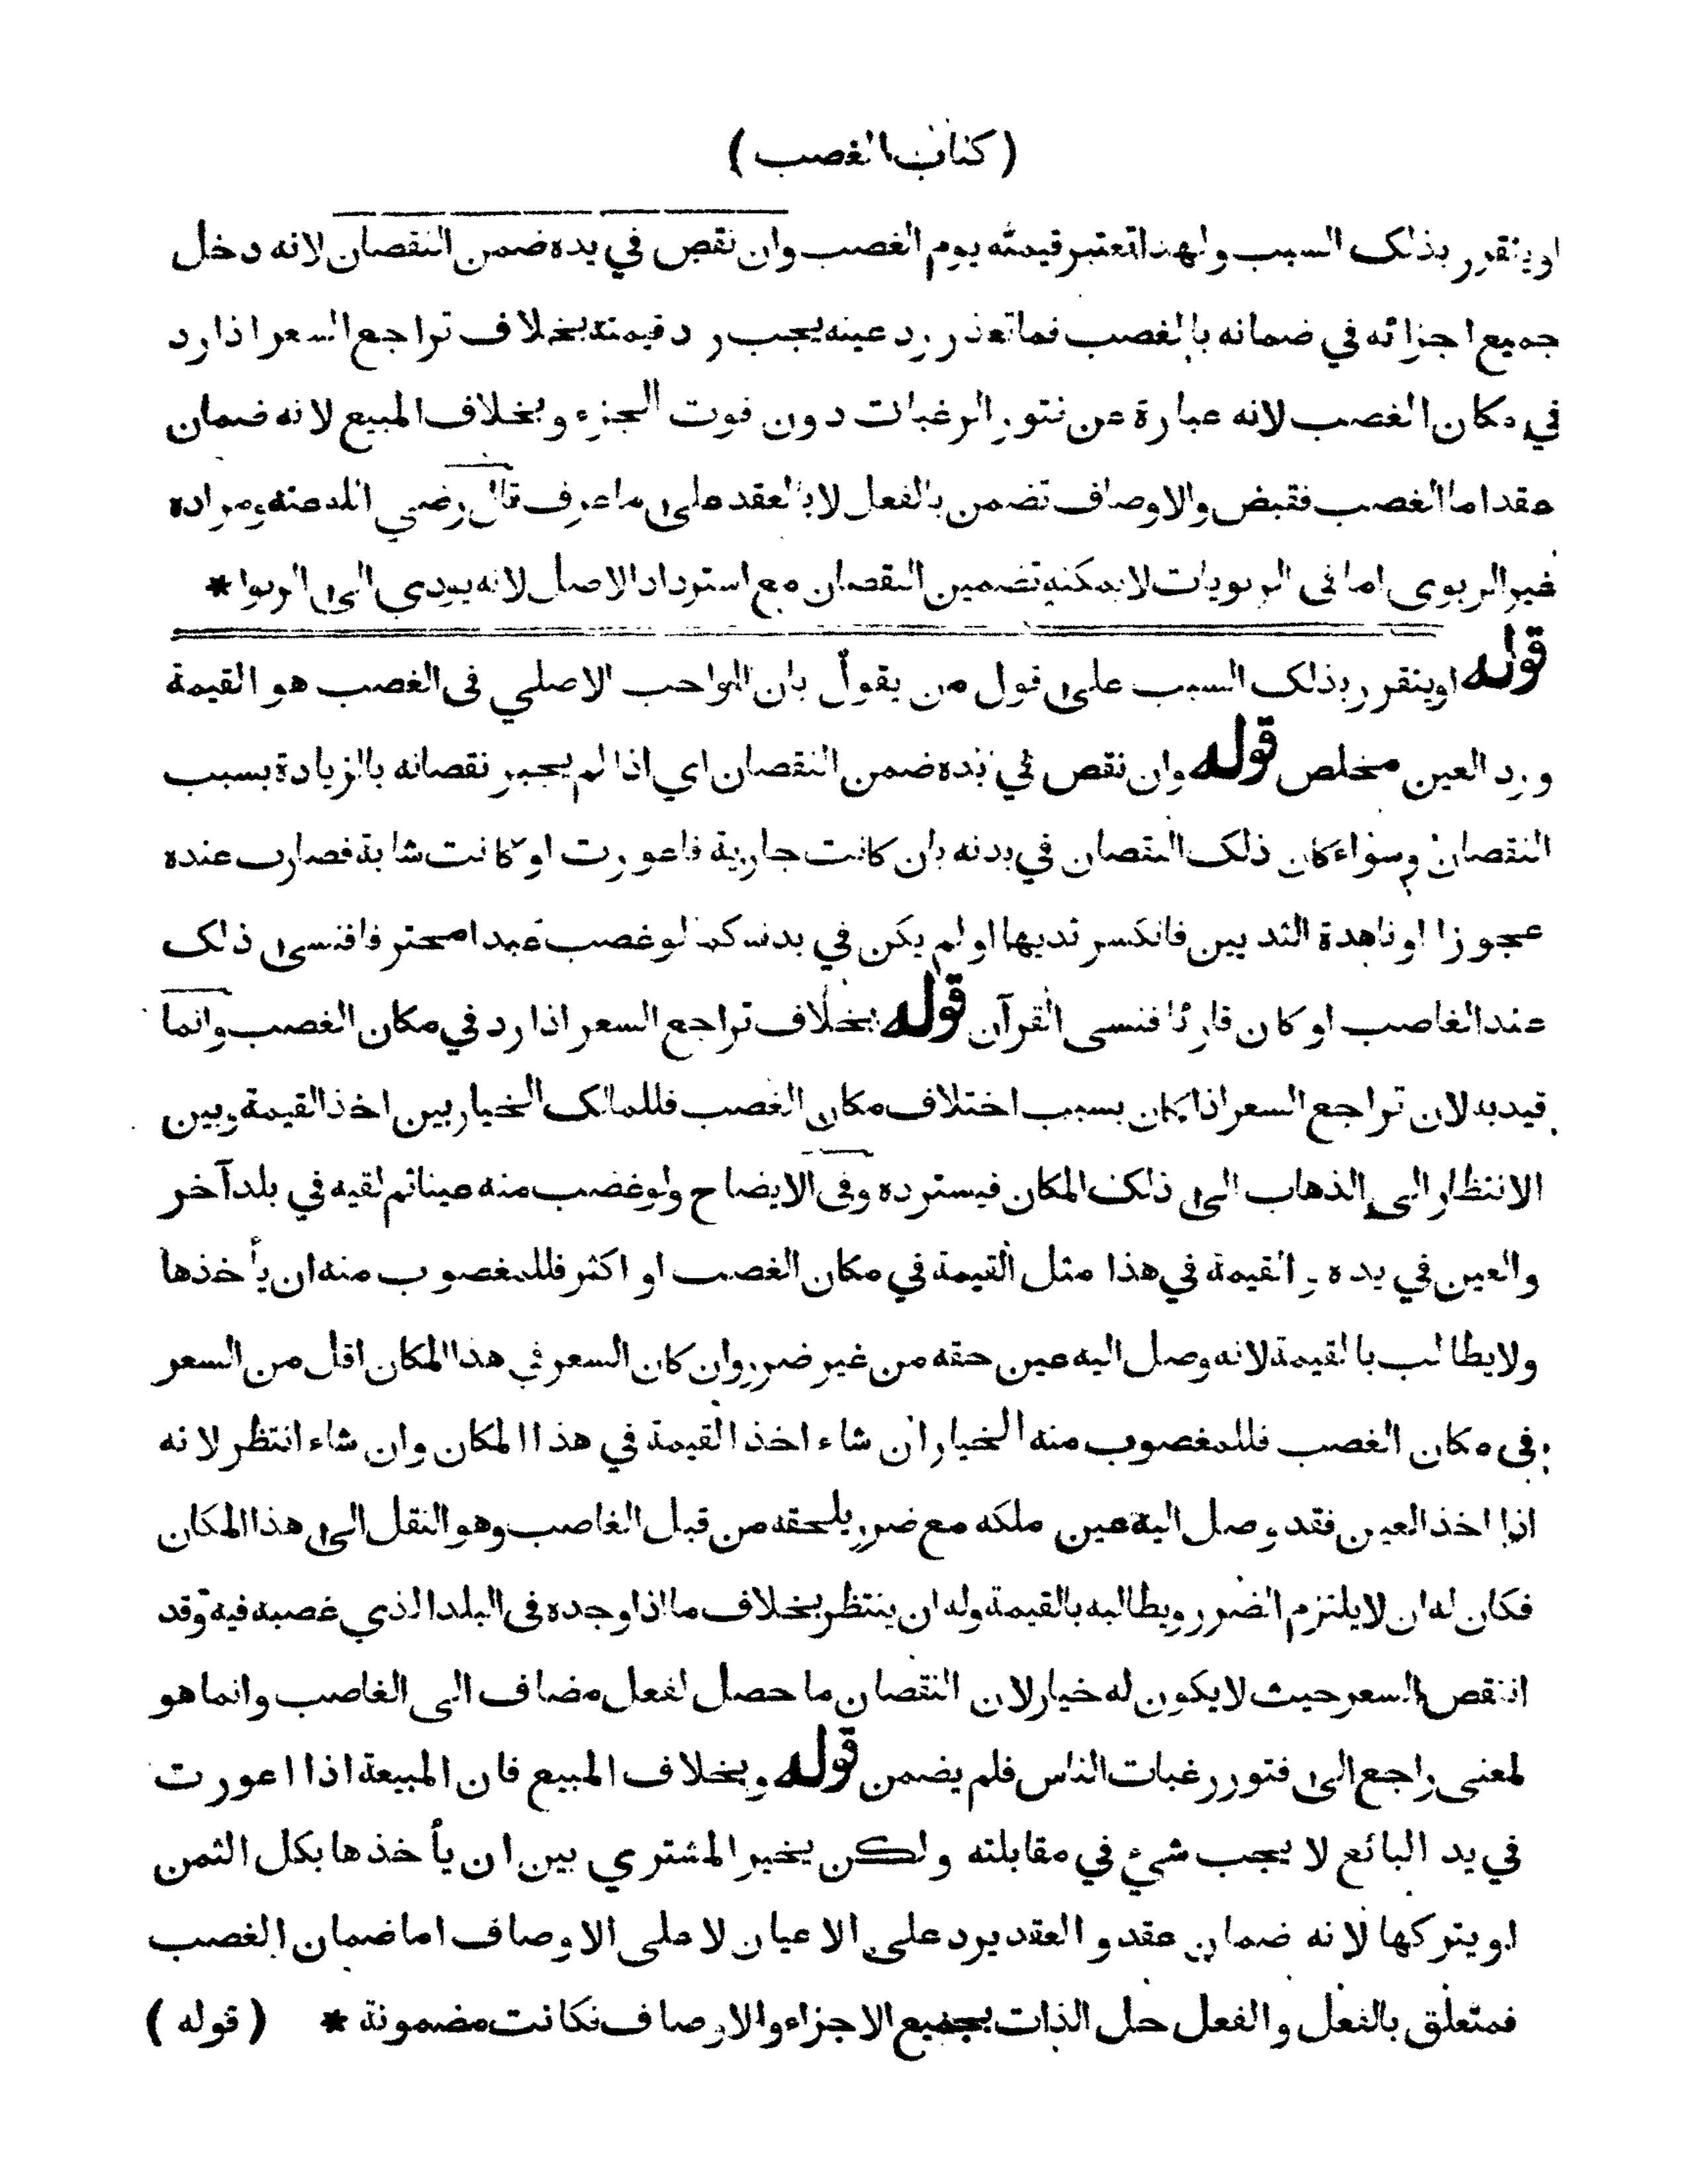 ( كتاب الغصب )
او يتقرر بذلك السبب ولهذا تعتبر قيمته يوم الغصب وان نقص في يده ضمن النقصان لانه دخل
جميع اجزائه في ضمانه بالغصب فما تعذر رد عينه يجب رد قيمته بخلاف تراجع السعر اذا رد
في مكان الغصب لانه عبارة عن فتور الرغبات دون فوت الجزء و بخلاف المبيع لانه ضمان
عقد اما الغصب فقبض والاوصاف تضمن بالفعل لا بالعقد على ما عرف قال رضي الله عنه ومراده
غير الربوى اما فى الربويات لا يمكنه تضمين النقصان مع استرداد الاصل لانه يودي الى الربوا *
قوله او يتقرر بذلك السبب على قول من يقول بان الواجب الاصلي فى الغصب هو القيمة
و رد العين مخلص قوله وان نقص في يده ضمن النقصان اي اذا لم يجبر نقصانه بالزيادة بسبب
النقصان وسواء كان ذلك النقصان في بدنه بان كانت جارية فاعورت او كانت شابة فصارت عنده
عجوزا او ناهدة الثديين فانكسر ثديها او لم يكن في بدنه كما لو غصب عبدا محترفا فنسى ذلك
عند الغاصب او كان قارئا فنسى القرآن قوله بخلاف تراجع السعر اذا رد في مكان الغصب وانما
قيد به لان تراجع السعر اذا كان بسبب اختلاف مكان الغصب فللمالك الخيار بين اخذ القيمة وبين
الانتظار الى الذهاب الى ذلك المكان فيسترده وفى الايضاح ولو غصب منه عينا ثم لقيه في بلد آخر
والعين في يده و القيمة في هذا مثل القيمة في مكان الغصب او اكثر فللمغصوب منه ان يأخذها
ولا يطالب بالقيمة لانه وصل اليه عين حقه من غير ضرر وان كان السعر في هذا المكان اقل من السعر
فى مكان الغصب فللمغصوب منه الخيار ان شاء اخذ القيمة في هذا المكان وان شاء انتظر لانه
اذا اخذ العين فقد وصل اليه عين ملكه مع ضرر يلحقه من قبل الغاصب وهو النقل الى هذا المكان
فكان له ان لا يلتزم الضرر ويطالبه بالقيمة وله ان ينتظر بخلاف ما اذا وجده فى البلد الذي غصبه فيه وقد
انتقص السعر حيث لا يكون له خيار لان النقصان ما حصل لفعل مضاف الى الغاصب وانما هو
لمعنى راجع الى فتور رغبات الناس فلم يضمن قوله وبخلاف المبيع فان المبيعة اذا اعورت
في يد البائع لا يجب شيء في مقابلته ولكن يخير المشتري بين ان يأخذها بكل الثمن
او يتركها لانه ضمان عقد و العقد يرد على الاعيان لا على الاوصاف اما ضمان الغصب
فمتعلق بالفعل والفعل حل الذات بجميع الاجزاء والاوصاف فكانت مضمونة * ( قوله )